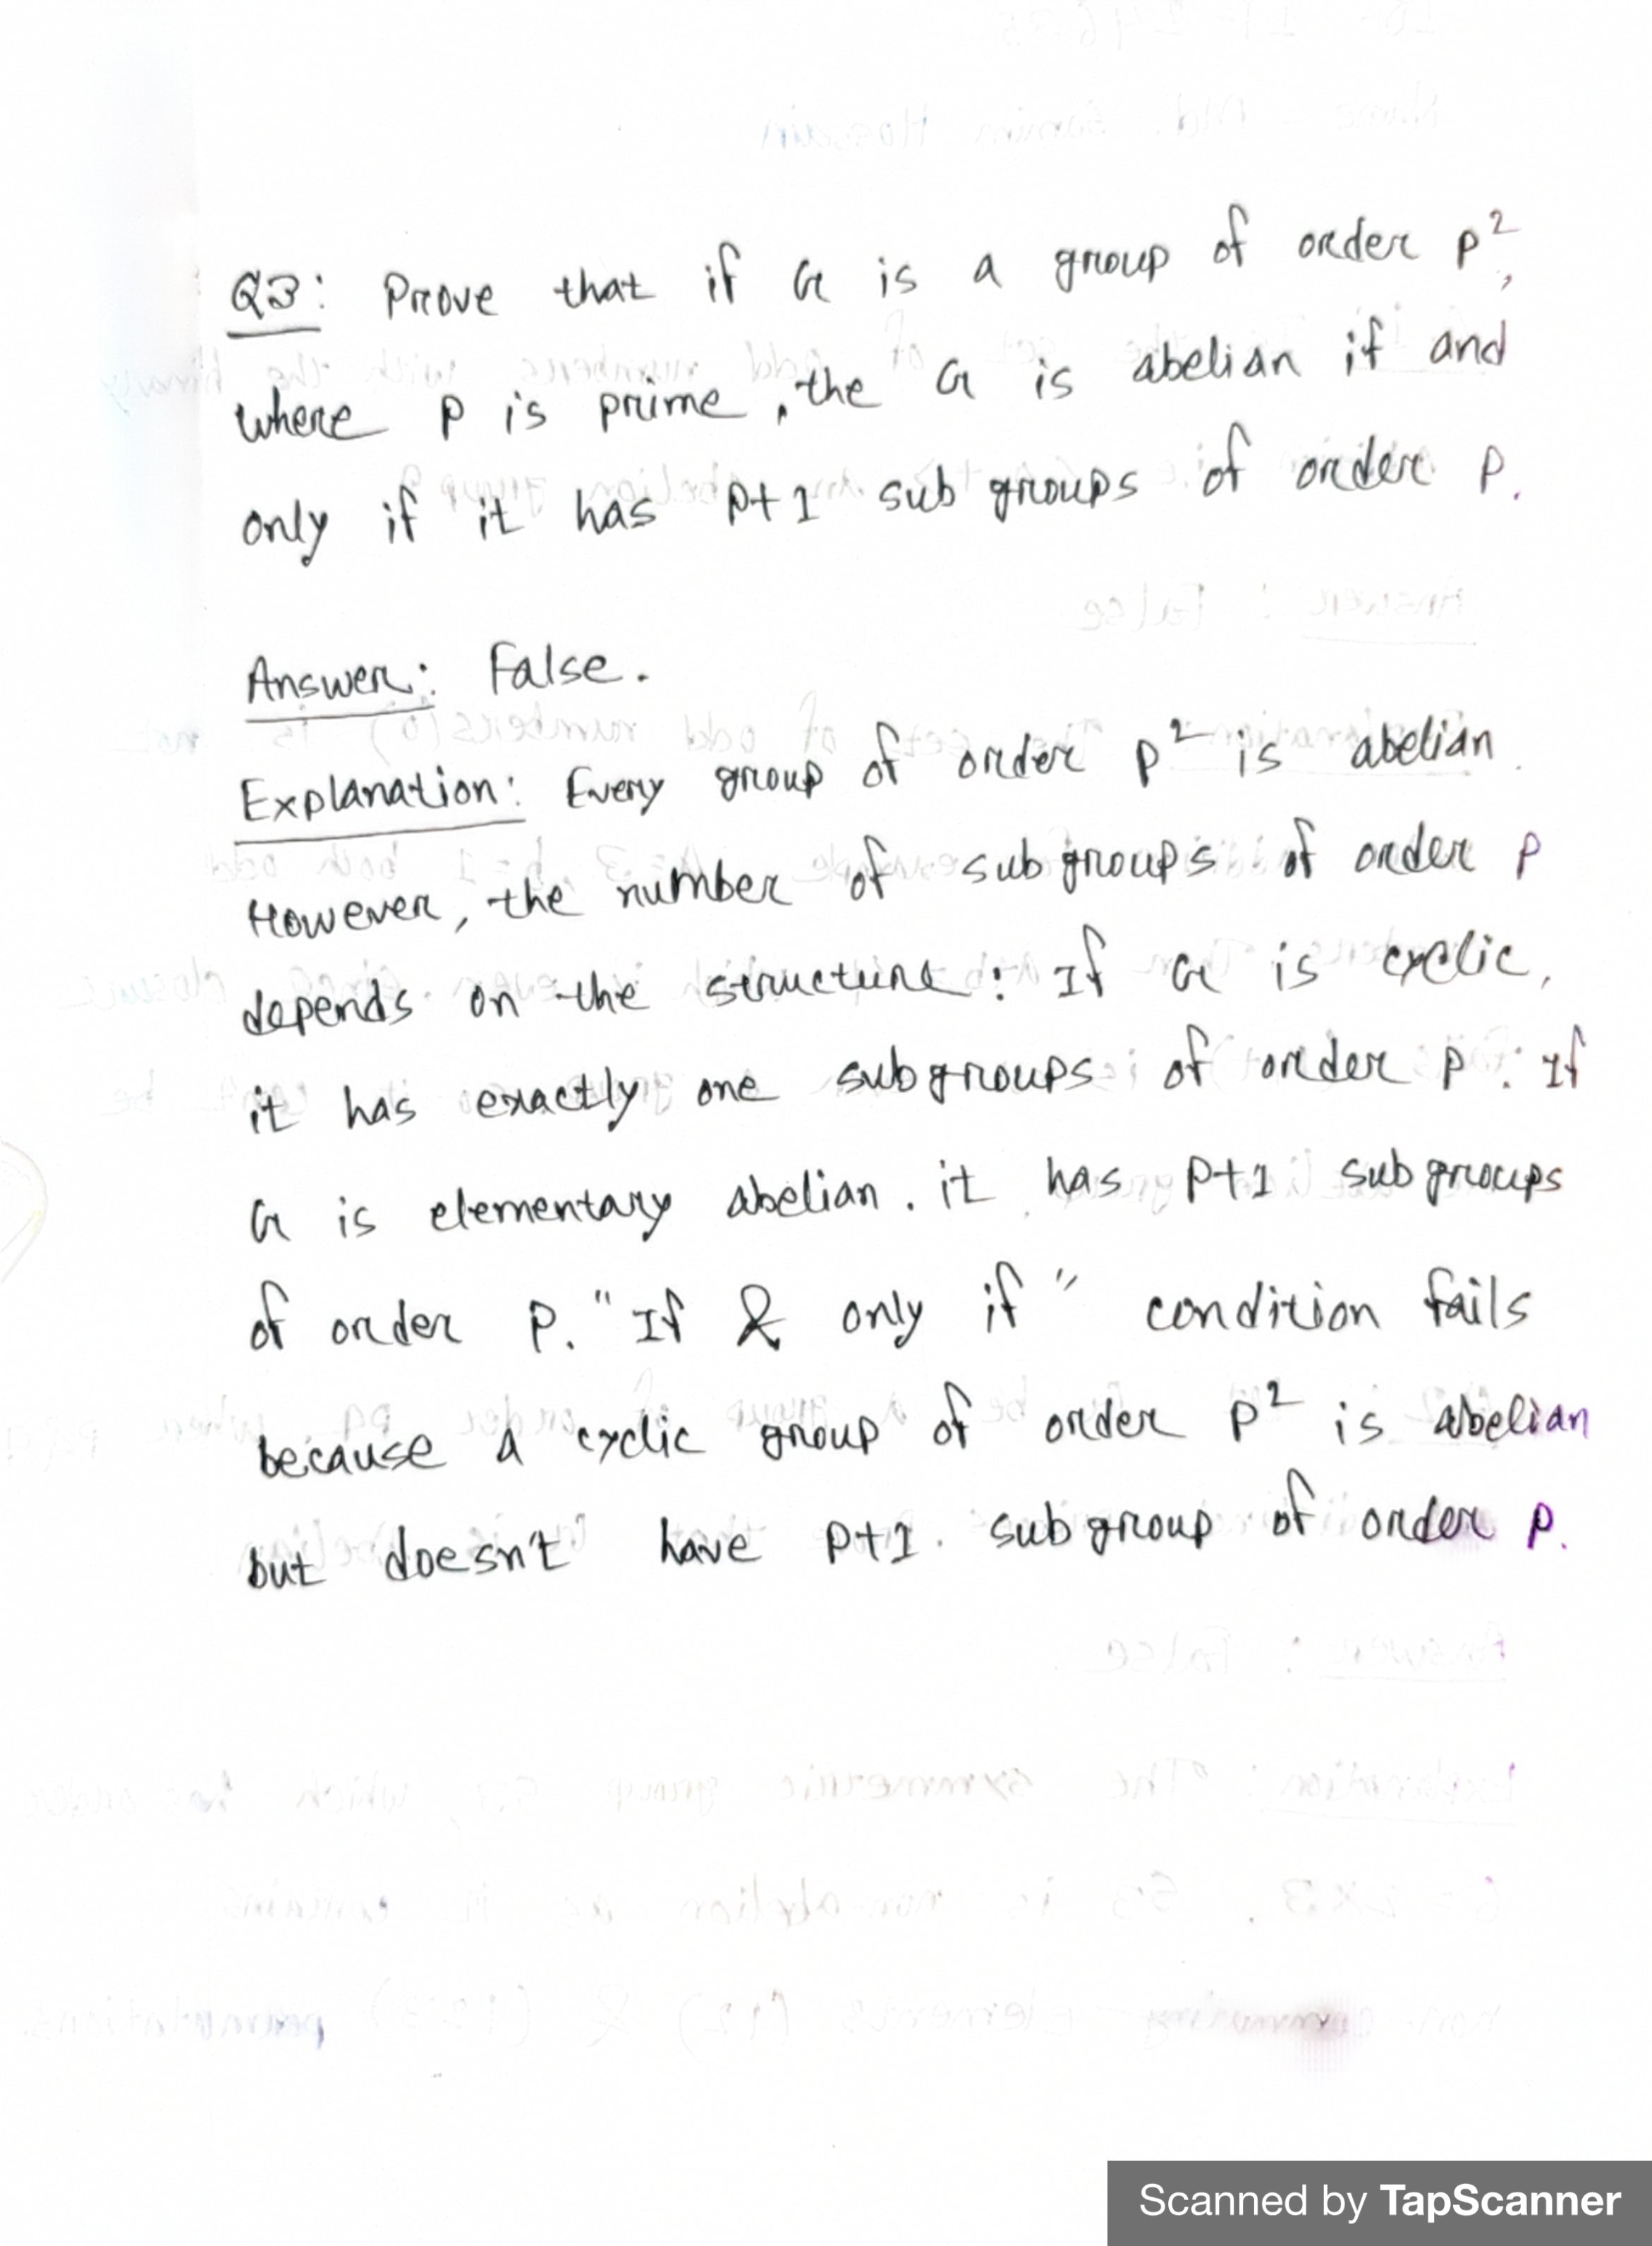 Q3: Prove that if G is a group of order p²,
where p is prime, the G is abelian if and
only if it has p+1 sub groups of order p.
Answer: False.
Explanation: Every group of order p² is abelian.
However, the number of subgroups of order p
depends on the structure: If G is cyclic,
it has exactly one subgroups of order p. If
G is elementary abelian. it has p+1 subgroups
of order p. "If & only if" condition fails
because a cyclic group of order p² is abelian
but doesn't have p+1. subgroup of order p.
Scanned by TapScanner